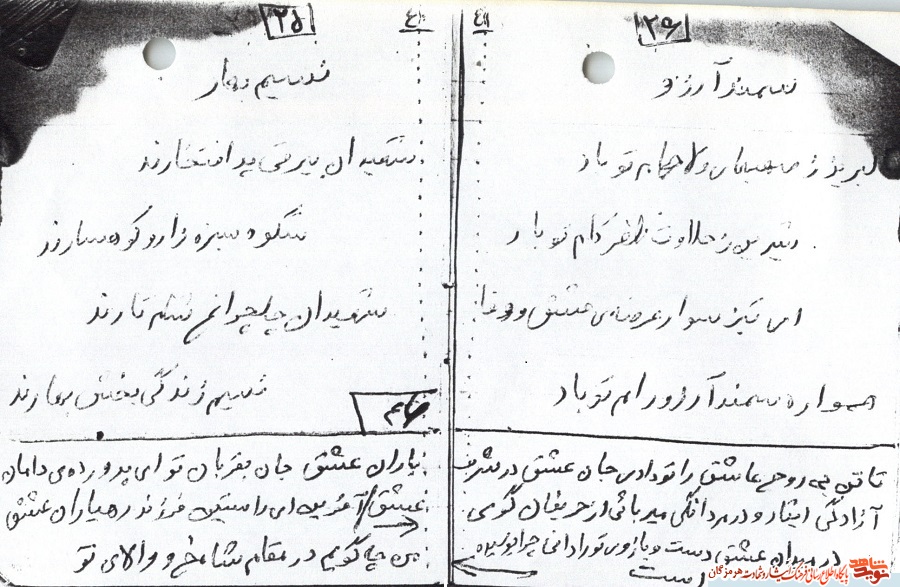 ۲۶
۴۱
سمند آرزو
لبریز ز صهبای ولا جام تو باد
شیرین ز حلاوت ظفر کام تو باد
ای تیز سوار عرصه‌ی عشق و وفا
همواره سمند آرزو رام تو باد
تا تن بی روح عاشق را تو دادی جان عشق در شرف
آزادگی ایثار و در مردانگی میربائی از حریفان گوی
در میدان عشق دست و بازوی تو را دانی چرا بوسیده
است
۲۵
۴۰
نسیم بهار
شهیدان بیرقی پر افتخارند
شکوه سبزه زار و کوهسارند
شهیدان چلچراغ شام تارند
نسیم زندگی بخش بهارند
۴۶
یاران عشق جان بقربان تو ای پرورده‌ی دامان
عشق / آفرین ای راستین فرزند رهیاران عشق
من چه گویم در مقام شامخ و والای تو
نوید شاهد
پایگاه اطلاع رسانی فرهنگ ایثار و شهادت هرمزگان